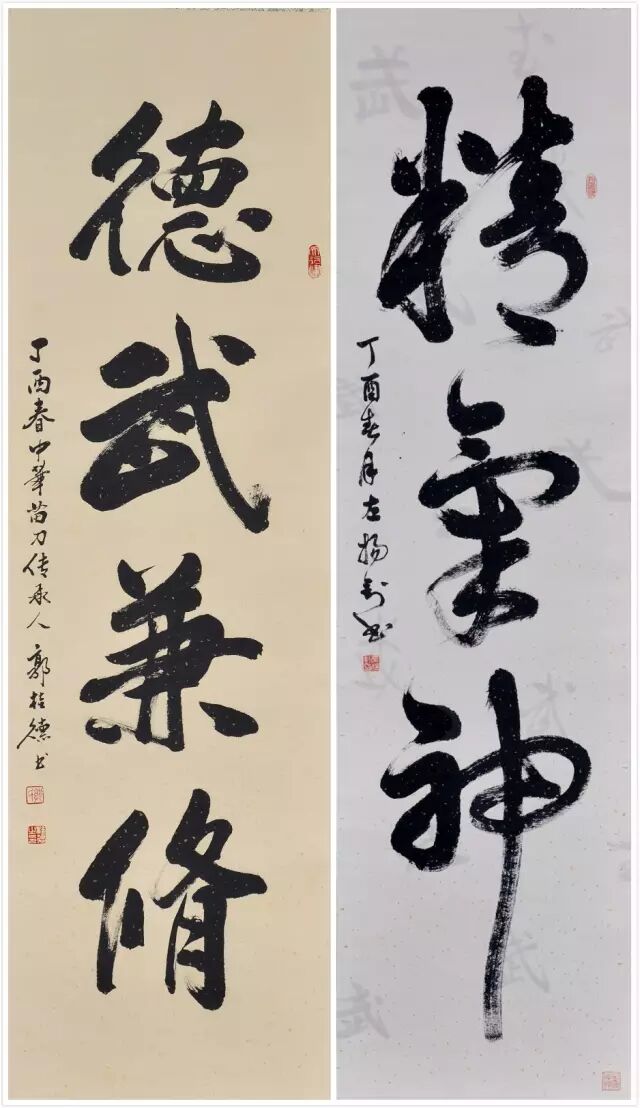 德武兼脩
丁酉春中華苗刀传承人郭桂德书
精氣神
丁酉春月左揚书